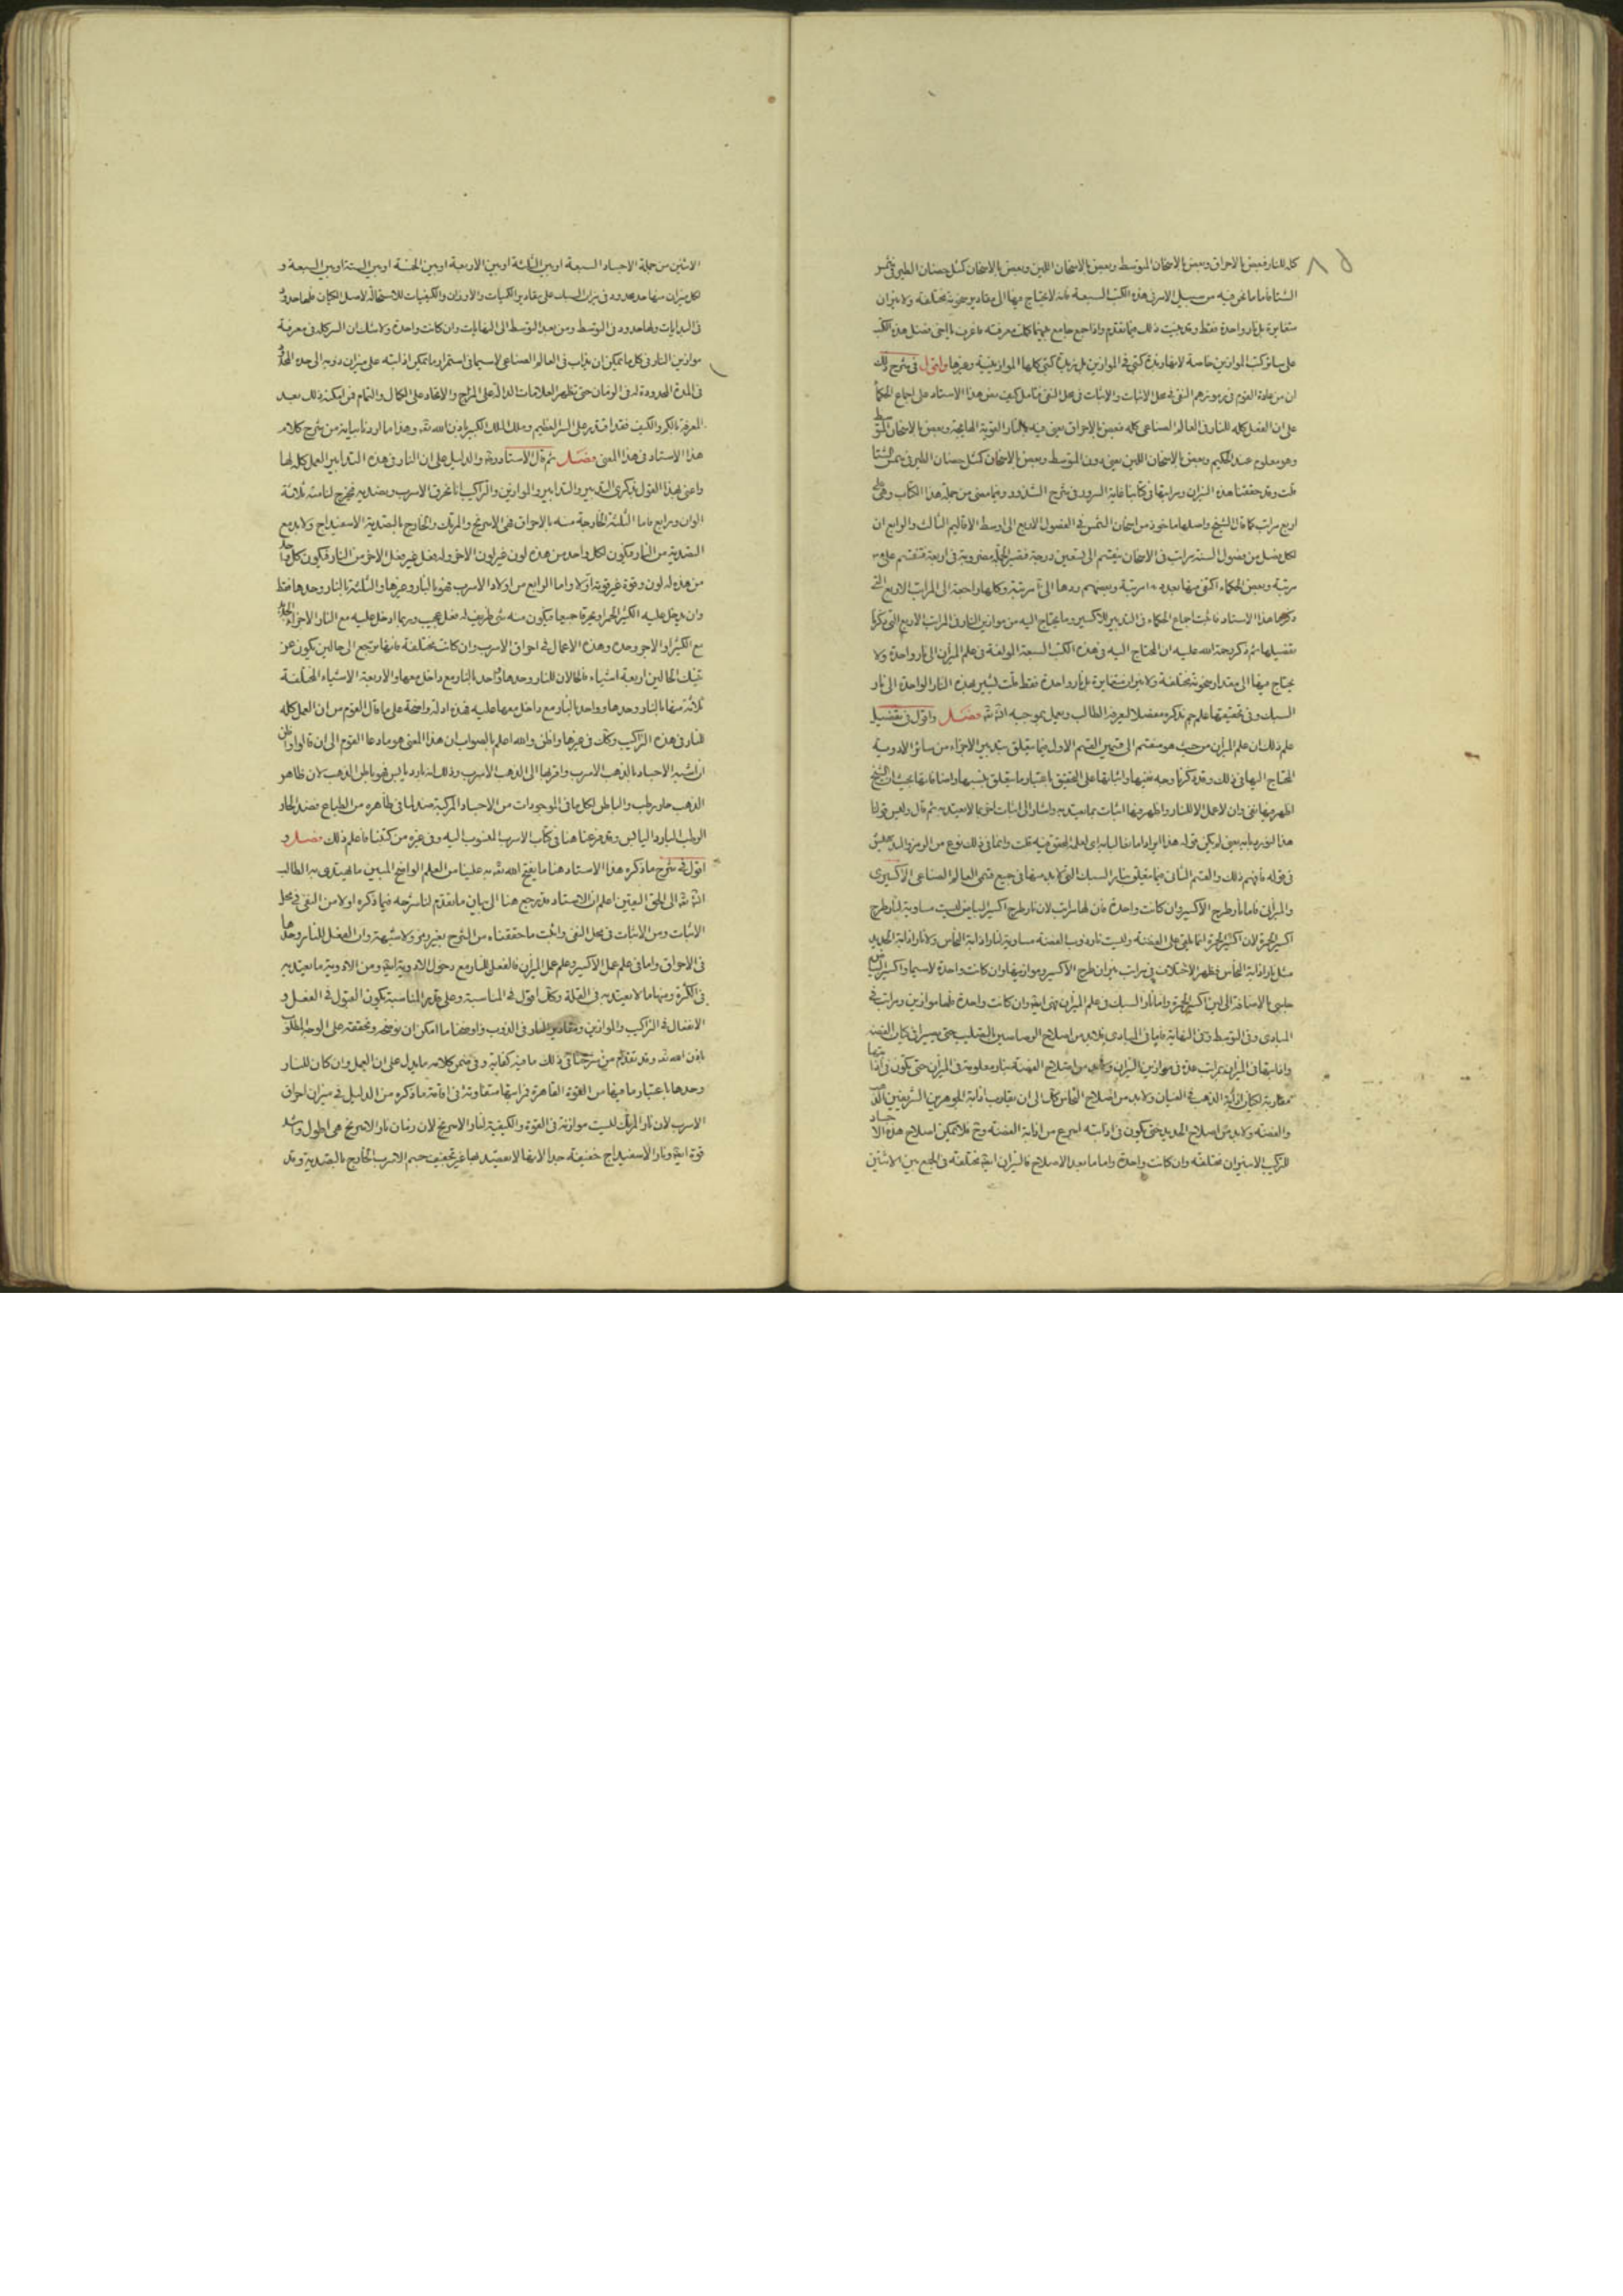 كله للنار فبعض بالاحراق وبعض بالاسخان المتوسط وبعض بالاسخان اللين وبعض بالاسخان كمثل حضنان الطير في شمس
الشتا فاما ما نحن فيه من سبيل الاسرب في هذه الكتب السبعة فانه لا يحتاج فيها الى مقادير سخونة مختلفة ولا نيران
متغايرة بل نار واحدة فقط وقد بينت ذلك فيما تقدم واذا جمع جامع بينهما كملت معرفته فاعرف يا اخي فضل هذه الكتب
على سائر كتب الموازين خاصة لا بل كتبي في الموازين بل كتبي كلها الموازينية وغيرها واقول في شرح ذلك
ان من عادة القوم في رموزهم النفي في محل الاثبات والاثبات في محل النفي فتامل كيف نص هذا الاستاد على اجماع الحكما
على ان الفعل كله للنار في العالم الصناعي كله فبعض بالاحراق يعني فيه بالنار القوية الهايجة وبعض بالاسخان المتوسط
وهو معلوم عند الحكيم وبعض بالاسخان اللين يعني دون المتوسط وبعض بالاسخان كمثل حضنان الطير في شمس الشتا
قلت وقد حققنا هذه النيران ومراتبها في كتابنا غاية السرور في شرح الشذور وفيما مضى من جملة هذا الكتاب وهي على
اربع مراتب كما قال الشيخ واصلها ماخوذ من اسخان الشمس في الفصول الاربع الى اوسط الاقاليم الثالث والرابع لان
لكل فصل من فصول السنة مراتب في الاسخان ينقسم الى تسعين درجة فتصير الجملة مضروبة في اربعة فتنقسم على
مرتبة وبعض الحكماء اكتفى منها بعدد مرتبة وبعضهم ردها الى مرتبة وكلها راجعة الى المراتب الاربع التي
ذكرها هذا الاستاد فاثبت اجماع الحكماء في التدبير للاكسير وما يحتاج اليه من موازين النار في المراتب الاربع التي ذكرنا
تفصيلها ثم ذكر رحمة الله عليه ان المحتاج اليه في هذه الكتب السبعة المولفة في علم الميزان الى نار واحدة ولا
يحتاج فيها الى مقدار سخونة مختلفة ولا نيران متغايرة بل نار واحدة فقط قلت يشير بهذه النار الواحدة الى نار
السبك وفي تحقيقها علم جم نذكره مفصلا ليعرفه الطالب ويعمل بموجبه ان شا الله فصل واقول في تفصيل
علم ذلك ان علم الميزان من حيث هو منقسم الى قسمين القسم الاول فيما يتعلق بتدبير الاجزاء من سائر الادوية
المحتاج اليها في ذلك وقد ذكرنا وجه نفيها واثباتها على التحقيق باعتبار ما يتعلق بنسبها واما نيرانها بحيث ان الشيخ
اظهر فيها نفي وان لا عمل الا للنار واظهر فيها اثبات بما يعتد به واشار الى اثبات اخر بما لا يعتد به ثم قال وليس قولنا
هذا
في قوله فافهم ذلك والقسم الثاني فيما يتعلق بنار السبك التي لا بد منها في جميع قسمي العالم الصناعي الاكسيري
والميزاني فاما نار طرح الاكسير وان كانت واحدة فان لها مراتب لان نار طرح اكسير البياض ليست مساوية لنار طرح
اكسير الحمرة لان اكسير الحمرة انما يلقى على الفضة وليست نار ذوب الفضة مساوية لنار اذابة النحاس ولا نار اذابة الحديد
مثل نار اذابة النحاس فظهر الاختلاف في مراتب نيران طرح الاكسير وموازينها وان كانت واحدة لاسيما واكسير البياض
جلبي بالاضافة الى لين اكسير الحمرة واما نار السبك في علم الميزان فهي ايضا وان كانت واحدة فلها موازين ومراتب في
المبادي وفي المتوسط وفي النهاية فاما في المبادي فلا بد من اصلاح الرصاصين بالتصليب حتى يصيرا في كيان الفضة
واذابتها في الميزان بمراتب عدة في موازين النيران ولا بد من اصلاح الفضة بنار معلومة في الميزان حتى تكون في اذابتها
مقاربة لكيان اذابة الذهب في العيان ولا بد من اصلاح النحاس كذلك الى ان يقارب اذابة الجوهرين الشريفين الذهب
والفضة ولا بد من اصلاح الحديد حتى يكون في اذابته اسرع من اذابة الفضة وح فلا يمكن اصلاح هذه الاجساد
للتركيب الا بنيران مختلفة وان كانت واحدة واما ما بعد الاصلاح فالنيران ايضا مختلفة في الجمع بين الاثنين
الاثنين من جملة الاجساد السبعة او بين الثلاثة او بين الاربعة او بين الخمسة او بين الستة او بين السبعة و
لكل ميزان منها حد محدود في نيران السبك على مقادير الكميات والاوزان والكيفيات للاستحالة لاصل الكيان فلها حدود
في البدايات ولها حدود في التوسط ومن بعد التوسط الى النهايات وان كانت واحدة ولا شك ان السر كله في معرفة
موازين النار في كل ما يمكن ان يذاب في العالم الصناعي لاسيما في استمرار ما يمكن اذابته على ميزان ذوبه الى حده المحدود
في المدة المحدودة له في الزمان حتى تظهر العلامات الدالة على المزاج والاتحاد على الكمال والتمام فمن امكنه ذلك بعد
المعرفة بالكم والكيف فقد اقتدر على السر العظيم وملك الملك الكبير باذن الله تعه وهذا ما اردنا بيانه من شرح كلام
هذا الاستاد في هذا المعنى فصل ثم قال الاستاد ره والدليل على ان النار في هذه التدابير العمل كله لها
واعني بهذا القول تذكري التدبير والتدابير والموازين والتراكيب انا نحرق الاسرب ونصديه فيخرج لنا منه ثلاثة
الوان ورابع فاما الثلثة الخارجة منه بالاحراق فهي الاسرنج والمرتك والخارج بالتصدية الاسفيداج ولا بد مع
التصدية من النار فيكون لكل واحد من هذه لون غير لون الاخر وله فعل غير فعل الاخر من النار فيكون كل واحد
من هذه له لون وقوة غير قوة الاولا واما الرابع من اولاد الاسرب فهو بالنار وغيرها والثلثة بالنار وحدها فقط
وان يدخل عليه الكثير الحمر ويحرقا جميعا فيكون منه شي ظريف له فعل عجيب وربما ادخل عليه مع النار الاجزاء
مع الكثير او الاجر وحده وهذه الاعمال في احراق الاسرب وان كانت مختلفة فانها ترجع الى حالين يكون عن
تينك الحالين اربعة اشياء فالحالان للنار وحدها واحد بالنار مع داخل معها والاربعة الاشياء المختلفة
ثلاثة منها بالنار وحدها وواحد بالنار مع داخل معها عليه فهذه ادلة واضحة على ما قال القوم من ان العمل كله
للنار في هذه التراكيب وكذلك في غيرها واظن والله اعلم بالصواب ان هذا المعنى هو ما دعا القوم الى ان قالوا
ان اشبه الاجساد بالذهب الاسرب واقربها الى الذهب الاسرب وذلك انه بارد يابس فهو باطن الذهب لان ظاهر
الذهب حار رطب والباطن لكل ما في الموجودات من الاجساد المركبة ضد لما في ظاهره من الطباع فضد الحار
الرطب البارد اليابس وقد فرغنا هنا في كتاب الاسرب المنسوب اليه وفي غيره من كتبنا فاعلم ذلك فصل و
اقول في شرح ما ذكره هذا الاستاد هنا ما يفتح الله تعه به علينا من العلم الواضح المبين ما يهتدي به الطالب
ان شا الله الى الحق اليقين اعلم ان الاستاد قد رجع هنا الى بيان ما تقدم لنا شرحه فيما ذكره اولا من النفي في محل
الاثبات ومن الاثبات في محل النفي واثبت ما حققناه من الشرح بغير رمز ولا شبهة وان الفعل للنار وحدها
في الاحراق واما في علم عمل الاكسير وعلم عمل الميزان فالفعل للنار مع دخول الادوية ايضا ومن الادوية ما يعتد به
في الكثرة ومنها ما لا يعتد به في القلة وكذلك اقول في المناسبة وعلى قدر المناسبة يكون القبول في الفعل و
الانفعال في التراكيب والموازين ومقادير النار في الذوب واوضحنا ما امكن ان نوضحه ونحققه على الوجه المطلوب
باذن الله تعه وقد تقدم من شرحنا في ذلك ما فيه كفاية وفي ضمن كلامه ما يدل على ان العمل وان كان للنار
وحدها باعتبار ما فيها من القوة القاهرة فمراتبها متفاوتة في اقامة ما ذكره من الدليل في ميزان احراق
الاسرب لان نار المرتك ليست موازنة في القوة والكيفية لنار الاسرنج لان زمان نار الاسرنج هي اطول واشد
قوة ايضا ونار الاسفيداج خفيفة جدا لانها لا يقصد بها غير تجفيف جسم الاسرب الخارج بالتصدية وقد